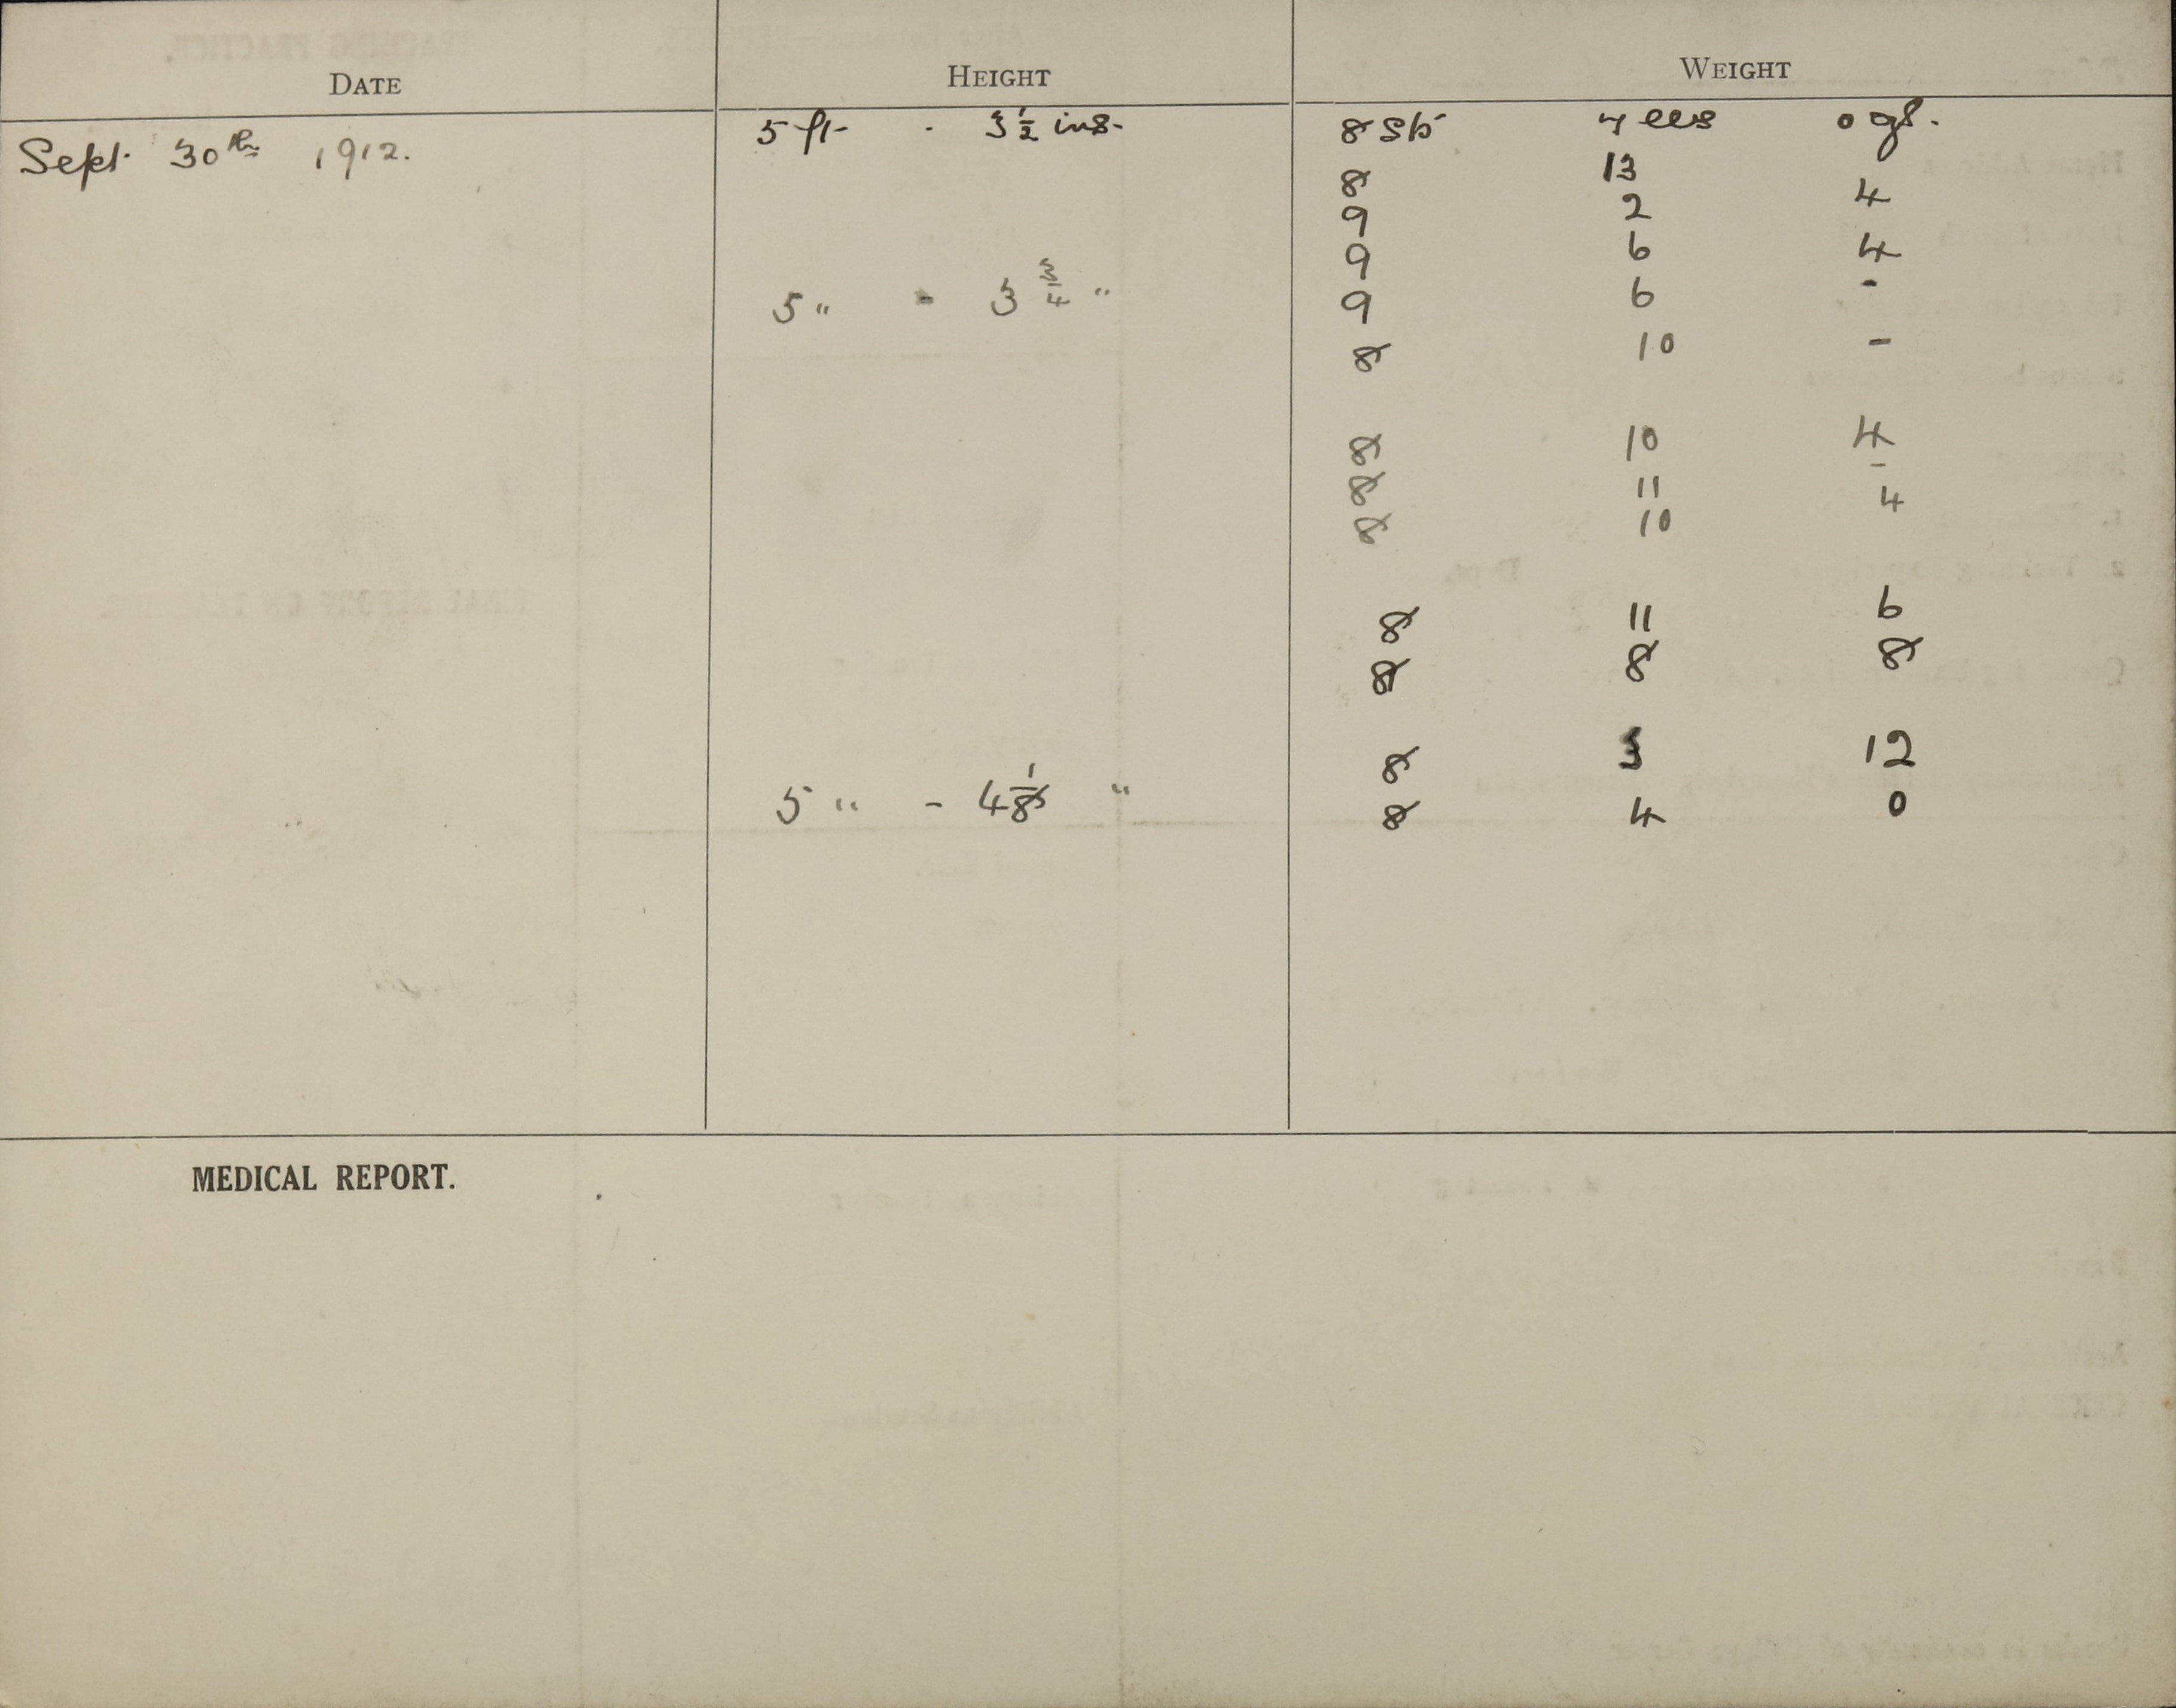 DATE HEIGHT WEIGHT
Sept. 30th 1912. 5 ft - 3 1/2 ins. 8 st 7 lbs 0 ozs.
8 13
9 2 4
9 6 4
5 " - 3 3/4 " 9 6 -
8 10 -
8 10 4
8 11 -
8 10 4
8 11 6
8 8 8
8 3 12
5 " - 4 1/8 " 8 4 0
MEDICAL REPORT.